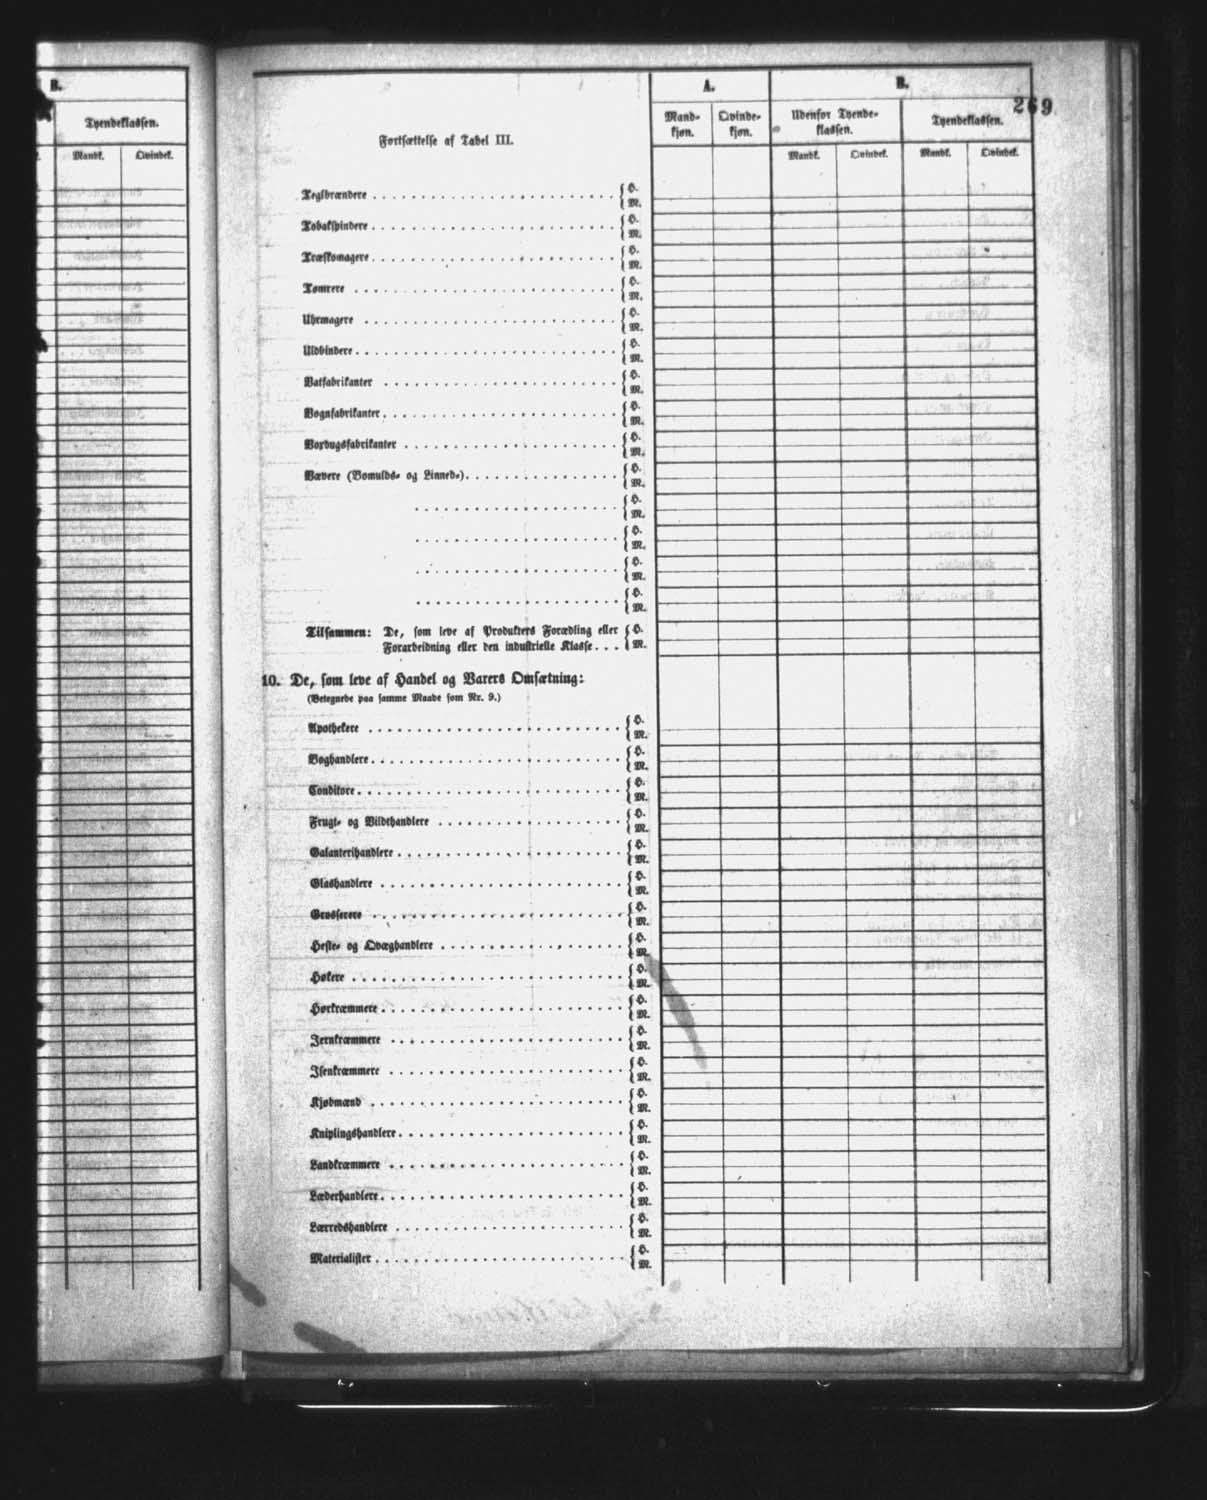 B.
Tyendeklassen.
Mandk. Qvindek.
269
Fortsættelse af Tabel III.
A. B.
Mand- Qvinde- Udenfor Tyende- Tyendeklassen.
kjøn. kjøn. klassen.
Mandk. Qvindek. Mandk. Qvindek.
Teglbrændere { H.
{ M.
Tobakspindere { H.
{ M.
Træskomagere { H.
{ M.
Tømrere { H.
{ M.
Uhrmagere { H.
{ M.
Uldbindere { H.
{ M.
Vatfabrikanter { H.
{ M.
Vognfabrikanter { H.
{ M.
Voxdugsfabrikanter { H.
{ M.
Vævere (Bomulds- og Linned-) { H.
{ M.
{ H.
{ M.
{ H.
{ M.
{ H.
{ M.
{ H.
{ M.
Tilsammen: De, som leve af Produkters Forædling eller { H.
Forarbeidning eller den industrielle Klasse . . . { M.
10. De, som leve af Handel og Varers Omsætning:
(Betegnede paa samme Maade som Nr. 9.)
Apothekere { H.
{ M.
Boghandlere { H.
{ M.
Conditore { H.
{ M.
Frugt- og Vildthandlere { H.
{ M.
Galanterihandlere { H.
{ M.
Glashandlere { H.
{ M.
Grosserere { H.
{ M.
Heste- og Qvæghandlere { H.
{ M.
Høkere { H.
{ M.
Hørkræmmere { H.
{ M.
Jernkræmmere { H.
{ M.
Isenkræmmere { H.
{ M.
Kjøbmænd { H.
{ M.
Kniplingshandlere { H.
{ M.
Landkræmmere { H.
{ M.
Læderhandlere { H.
{ M.
Lærredshandlere { H.
{ M.
Materialister { H.
{ M.